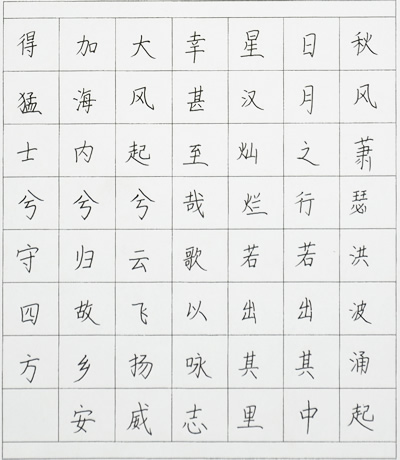 秋风萧瑟洪波涌起
日月之行若出其中
星汉灿烂若出其里
幸甚至哉歌以咏志
大风起兮云飞扬威
加海内兮归故乡安
得猛士兮守四方